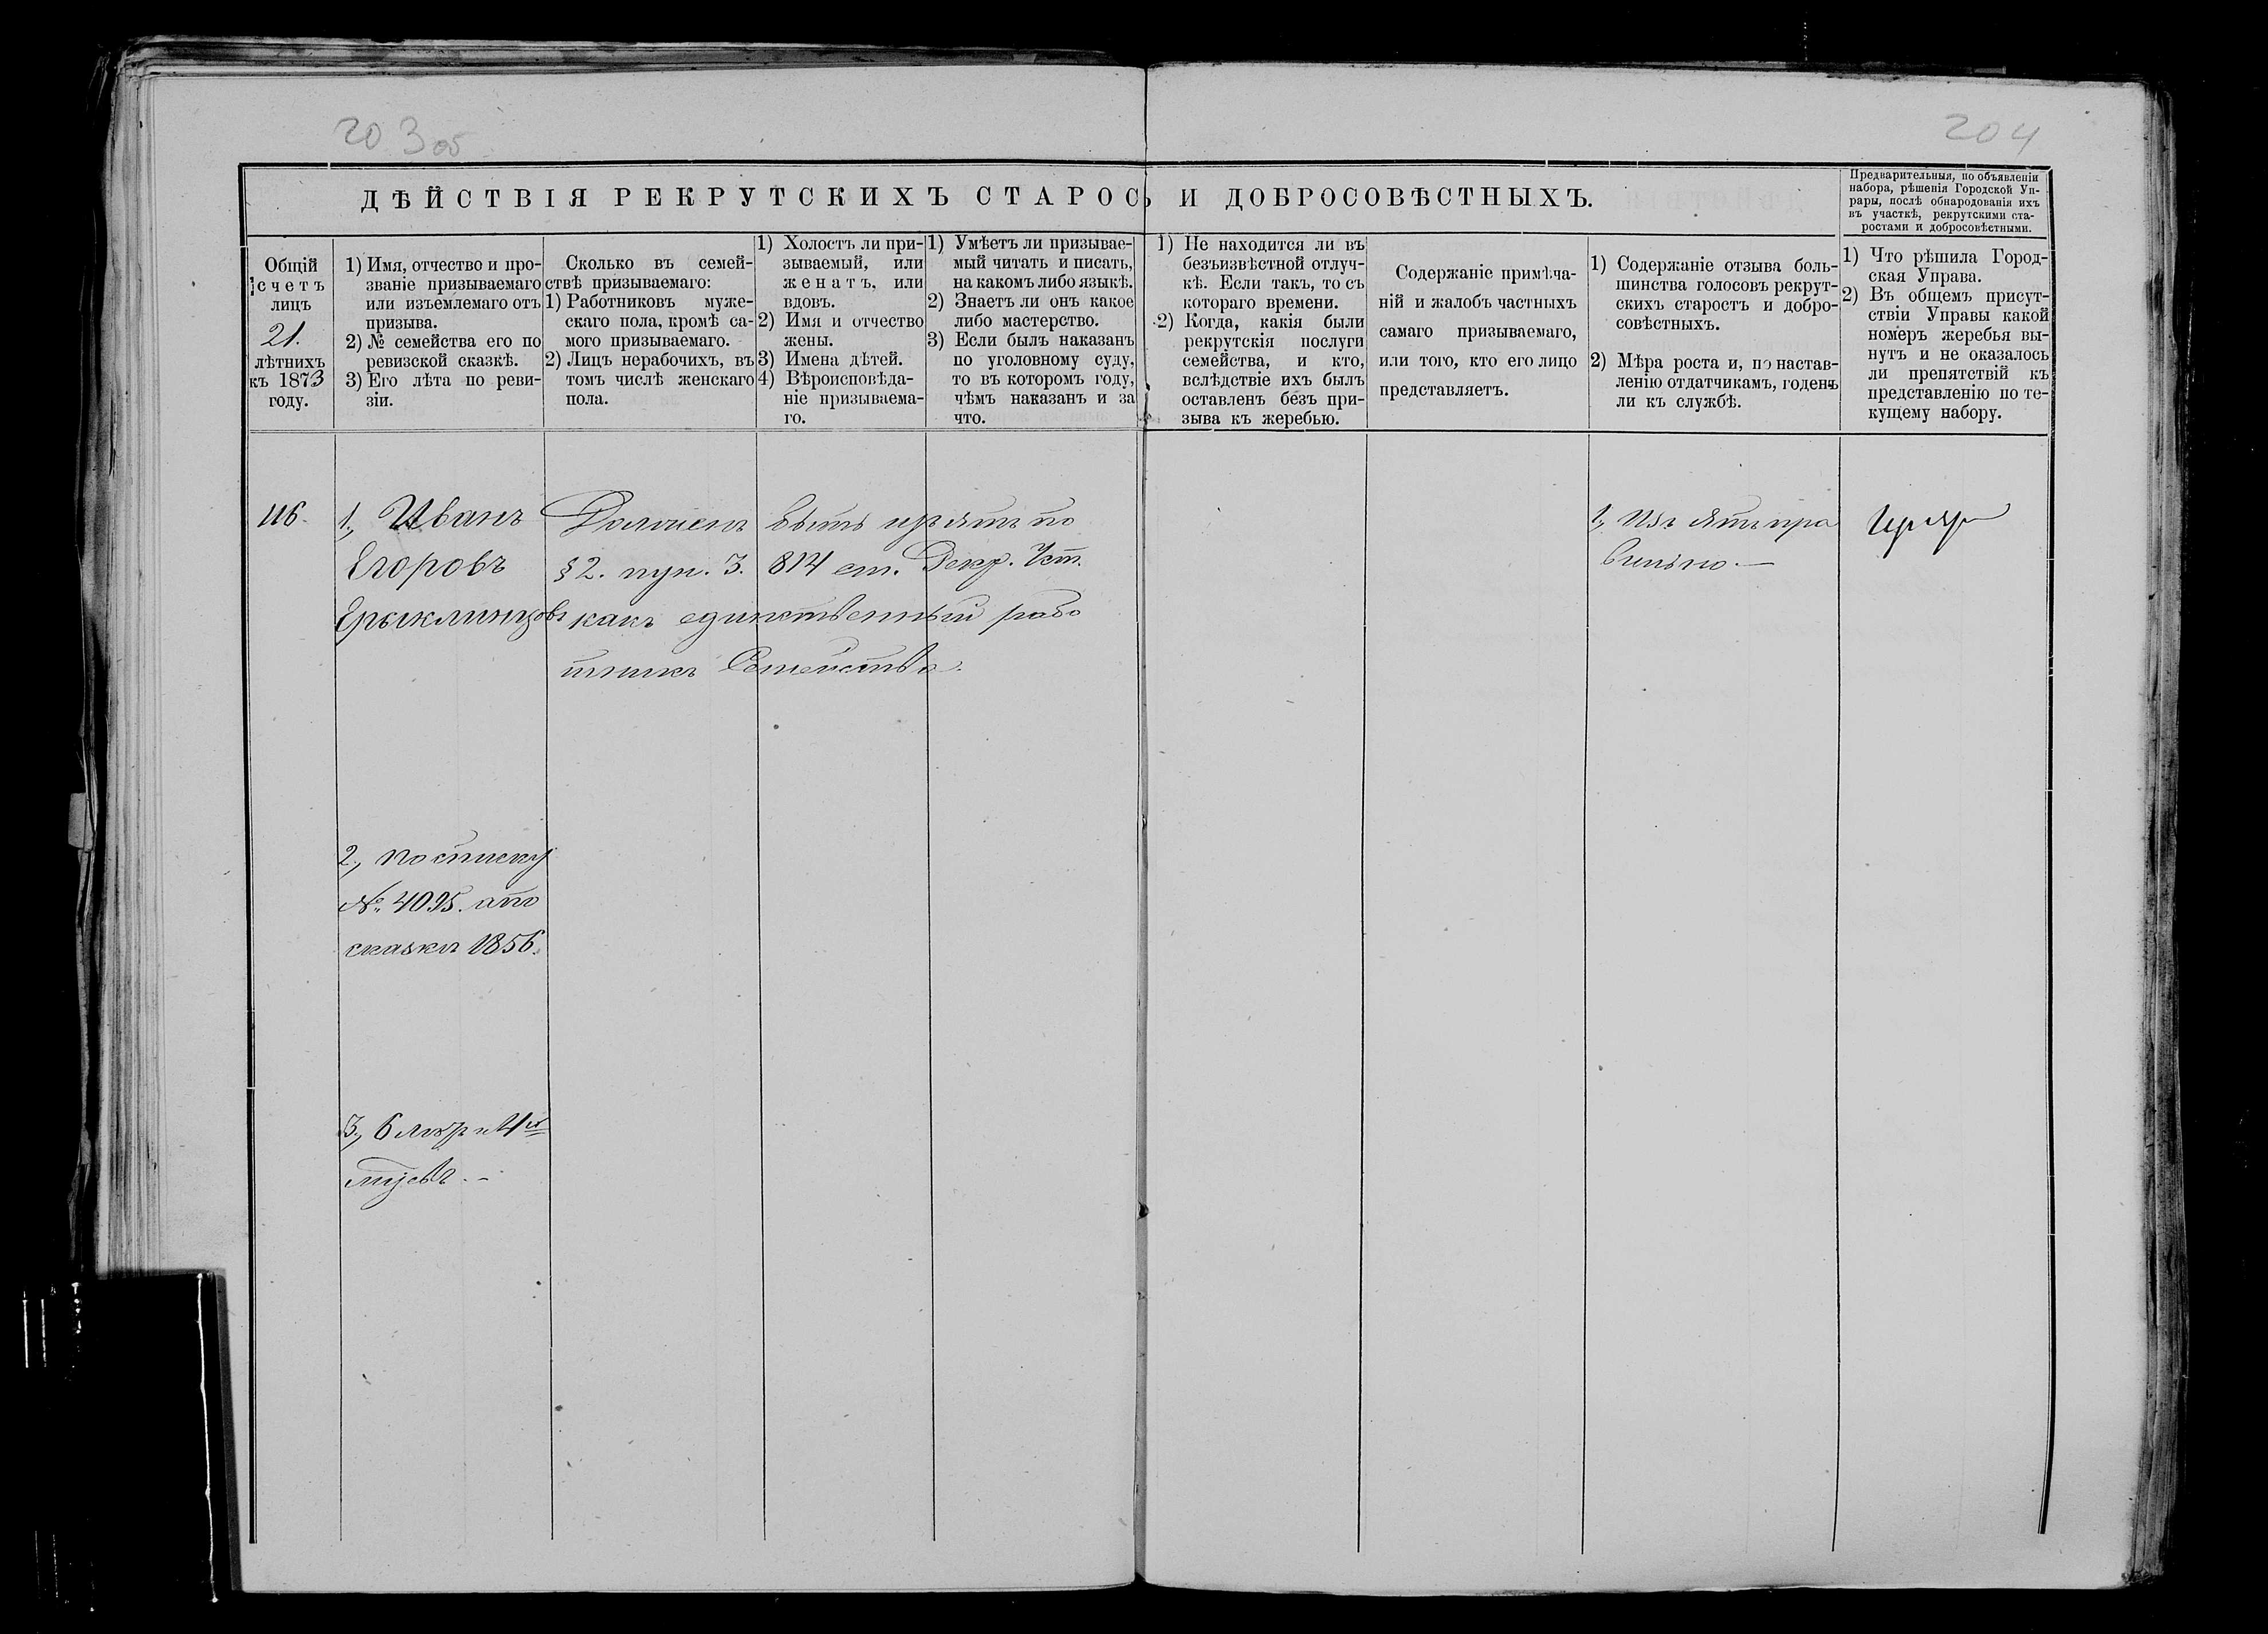 203об
204
ДѢЙСТВІЯ РЕКРУТСКИХЪ СТАРОС Ъ И ДОБРОСОВѢСТНЫХЪ.
Предварительныя, по объявленіи
набора, рѣшенія Городской Уп-
рары, послѣ обнародованія ихъ
въ участкѣ, рекрутскими ста-
ростами и добросовѣстными.
Общій
счетъ
лицъ
21.
лѣтнихъ
къ 1873
году.
1) Имя, отчество и про-
званіе призываемаго
или изъемлемаго отъ
призыва.
2) № семейства его по
ревизской сказкѣ.
3) Его лѣта по реви-
зіи.
Сколько въ семей-
ствѣ призываемаго:
1) Работниковъ муже-
скаго пола, кромѣ са-
мого призываемаго.
2) Лицъ нерабочихъ, въ
томъ числѣ женскаго
пола.
1) Холостъ ли при-
зываемый, или
женатъ, или
вдовъ.
2) Имя и отчество
жены.
3) Имена дѣтей.
4) Вѣроисповѣда-
ніе призываема-
го.
1) Умѣетъ ли призывае-
мый читать и писать,
на какомъ либо языкѣ.
2) Знаетъ ли онъ какое
либо мастерство.
3) Если былъ наказанъ
по уголовному суду,
то въ которомъ году,
чѣмъ наказанъ и за
что.
1) Не находится ли въ
безъизвѣстной отлуч-
кѣ. Если такъ, то съ
котораго времени.
2) Когда, какія были
рекрутскія послуги
семейства, и кто,
вслѣдствіе ихъ былъ
оставленъ безъ при-
зыва къ жеребью.
Содержаніе примѣча-
ній и жалобъ частныхъ
самаго призываемаго,
или того, кто его лицо
представляетъ.
1) Содержаніе отзыва боль-
шинства голосовъ рекрут-
скихъ старостъ и добро-
совѣстныхъ.
2) Мѣра роста и, по настав-
ленію отдатчикамъ, годенъ
ли къ службѣ.
1) Что рѣшила Город-
ская Управа.
2) Въ общемъ присут-
ствіи Управы какой
номеръ жеребья вы-
нутъ и не оказалось
ли препятствій къ
представленію по те-
кущему набору.
116.
1., Иванъ
Егоровъ
Ерыклинцовъ
Долженъ быть изъятъ по
§ 2. пун. 3. 814 ст. Рекр. Уст.
какъ единственный рабо
тникъ Семейства.
2., по списку
№ 4095. а по
сказкѣ 1856.
3., 6 лѣтъ и 4хъ
мцевъ. -
1., Изъятъ пра
вильно. —